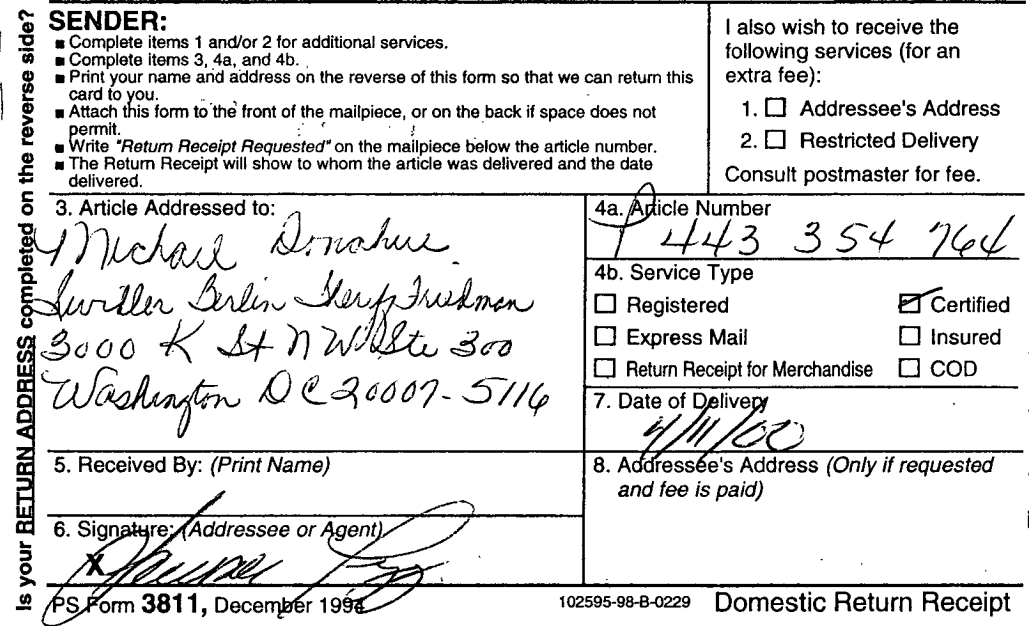 Is your RETURN ADDRESS completed on the reverse side?
SENDER:
■ Complete items 1 and/or 2 for additional services.
■ Complete items 3, 4a, and 4b.
■ Print your name and address on the reverse of this form so that we can return this
card to you.
■ Attach this form to the front of the mailpiece, or on the back if space does not
permit.
■ Write "Return Receipt Requested" on the mailpiece below the article number.
■ The Return Receipt will show to whom the article was delivered and the date
delivered.
I also wish to receive the
following services (for an
extra fee):
1. ☐ Addressee's Address
2. ☐ Restricted Delivery
Consult postmaster for fee.
3. Article Addressed to:
Michael Donahue
Swidler Berlin Shereff Friedman
3000 K St NW Ste 300
Washington DC 20007-5116
4a. Article Number
P 443 354 764
4b. Service Type
☐ Registered
☑ Certified
☐ Express Mail
☐ Insured
☐ Return Receipt for Merchandise
☐ COD
7. Date of Delivery
/11/00
5. Received By: (Print Name)
8. Addressee's Address (Only if requested
and fee is paid)
6. Signature: (Addressee or Agent)
X
PS Form 3811, December 1994
102595-98-B-0229
Domestic Return Receipt